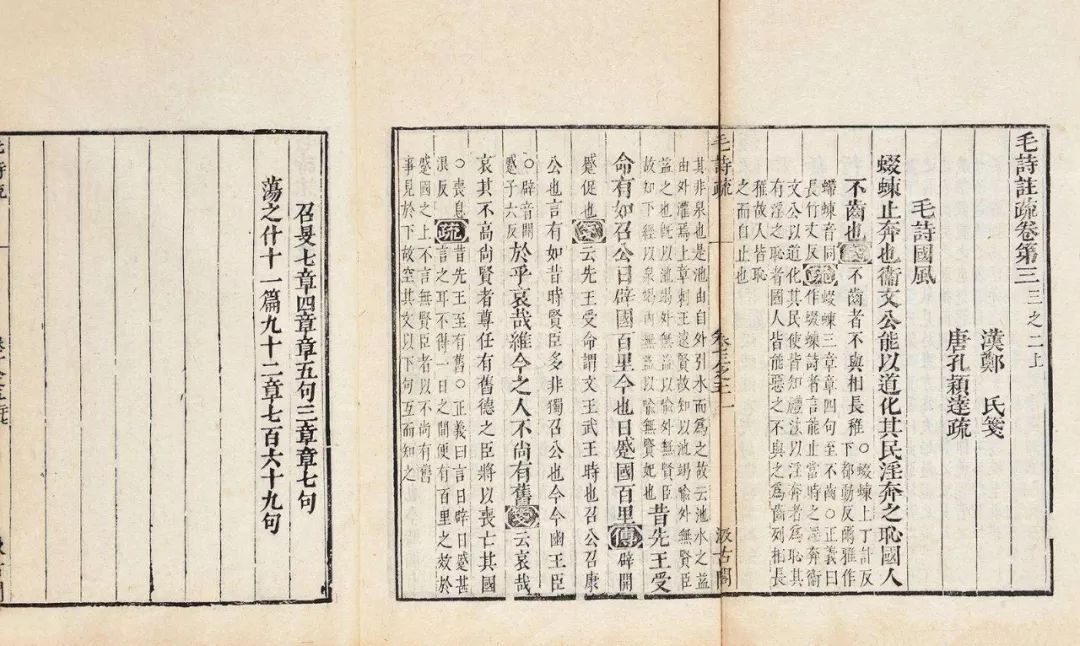 毛詩註疏卷第三 三之二上
漢鄭 氏箋
唐孔穎達疏
毛詩國風
蝃蝀止奔也衞文公能以道化其民淫奔之恥國人
不齒也箋不齒者不與相長稚
○蝃蝀上丁計反
下都動反爾雅作
螮蝀音同
長竹丈反
疏
蝃蝀三章章四句至不齒○正義曰
作蝃蝀詩者言能止當時之淫奔衞
文公以道化其民使皆知禮法以淫奔者為恥其
有淫之恥者國人皆能惡之不與之為齒列相長
稚故人皆恥
之而自止也
毛詩疏 一 汲古閣
其非泉也是池由自外引水而為之故云池水之益
由外灌焉上章刺王遠賢故知以池竭喻外無賢臣
益之也旣以池竭外無益以喻外無賢臣
故如下經以泉竭內無益以喻無賢妃也
昔先王受
命有如召公日辟國百里今也日蹙國百里傳辟開
蹙促也箋云先王受命謂文王武王時也召公召康
公也言有如昔時賢臣多非獨召公也今今幽王臣
○辟音闢
蹙子六反
於乎哀哉維今之人不尚有舊箋云哀哉
哀其不高尚賢者尊任有舊德之臣將以喪亡其國
○喪息
浪反
疏
昔先王至有舊○正義曰言日辟日蹙甚
言之耳不得一日之間便有百里之效於
蹙國之上不言無賢臣者以不尚有舊
事見於下故空其文以下句互而知之
召旻七章四章章五句三章章七句
蕩之什十一篇九十二章七百六十九句